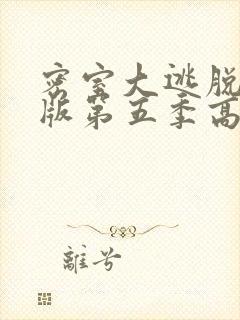 密室大逃脱
版第五季高
離兮